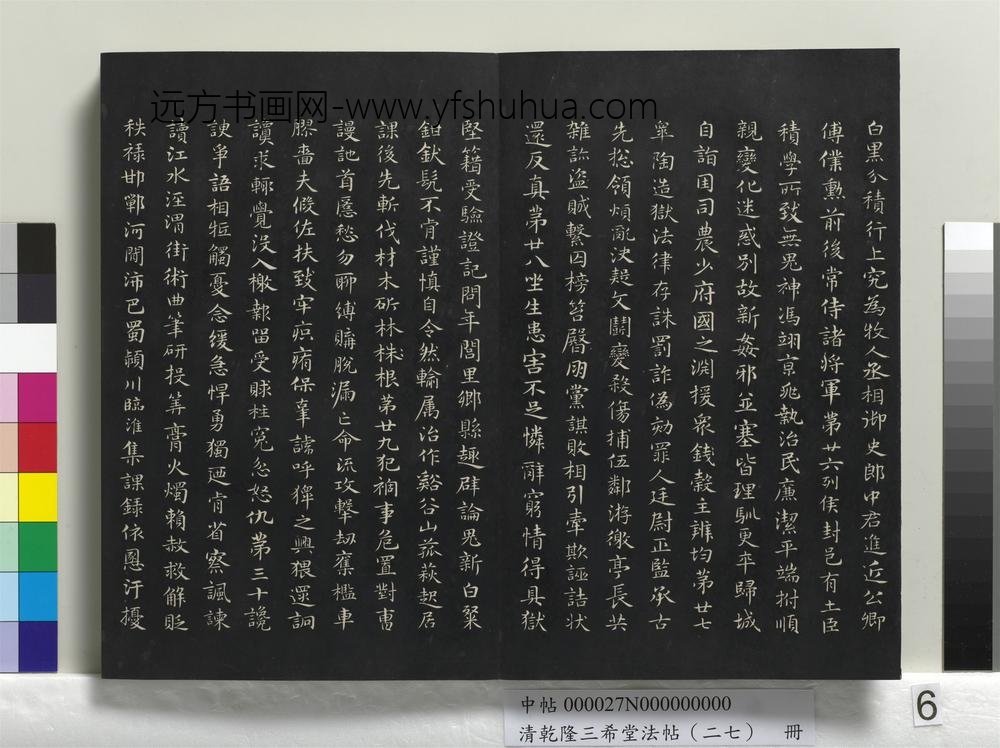 远方书画网-www.yfshuhua.com
白黑分積行上究為牧人丞相御史郎中君進近公卿
傅僕勳前後常侍諸將軍第廿六列侯封邑有土臣
積學所致無鬼神馮翊京兆執治民廉潔平端拊順
親變化迷惑別故新姦邪並塞皆理馴更卒歸城
自詣困司農少府國之淵援衆錢穀主辨均第廿七
皋陶造獄法律存誅罰詐偽劾罪人廷尉正監承古
先捴領煩亂決疑文鬬變殺傷捕伍鄰游徼亭長共
雜診盜賊繫囚榜笞臀朋黨謀敗相引牽欺誣詰狀
還反真第廿八坐生患害不足憐辭窮情得具獄
堅籍受驗證記問年閭里鄉縣趣辟論鬼新白粲
鉗釱髡不肯謹慎自令然輸屬治作谿谷山菰萩起居
課後先斬伐材木斫株根第廿九犯禍事危置對曹
謾訑首匿愁勿聊縛購脫漏亡命流攻擊劫奪檻車
膠嗇夫假佐扶致牢疻痏保辜謕呼獋之興猥還詗
讀求輒覺沒入檄報留受賕枉冤忿怒仇第三十讒
諛爭語相牴觸憂念緩急悍勇獨迺肯省察諷諫
讀江水涇渭街術曲筆研投筭膏火燭賴赦救解貶
秩祿邯鄲河間沛巴蜀潁川臨淮集課録依恩汙擾
6
中帖 000027N000000000
清乾隆三希堂法帖（二七） 冊